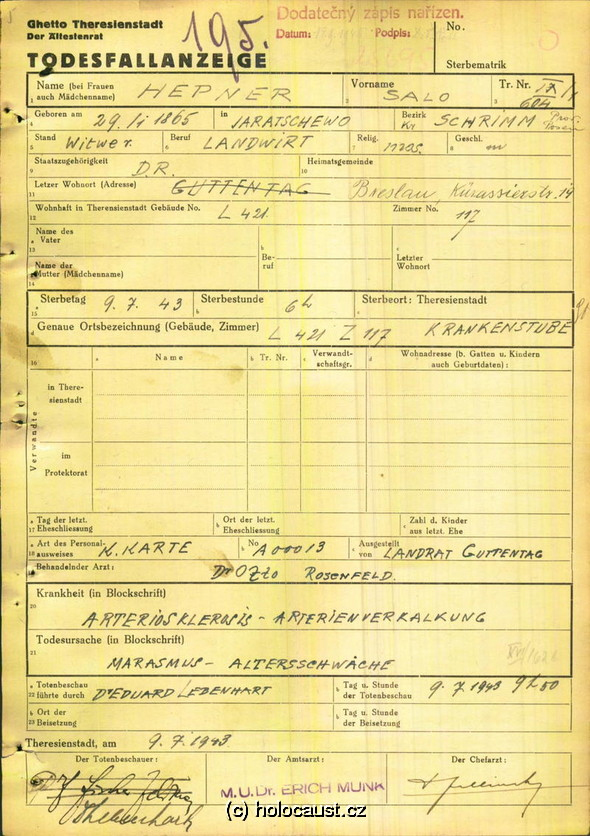 Ghetto Theresienstadt
Der Ältestenrat
TODESFALLANZEIGE
195.
Dodatečný zápis nařízen.
Datum: Podpis:
No.
Sterbematrik
Name (bei Frauen auch Mädchenname) HEPNER
Vorname SALO
Tr. Nr. IX/1 604
Geboren am 29. II 1865 in JARATSCHEWO Bezirk Kr SCHRIMM Prov. Posen
Stand Witwer Beruf LANDWIRT Relig. mos. Geschl. m
Staatszugehörigkeit D.R. Heimatsgemeinde
Letzer Wohnort (Adresse) GUTTENTAG Breslau, Kürassierstr. 14
Wohnhaft in Theresienstadt Gebäude No. L 421 Zimmer No. 117
Name des Vater
Beruf
Letzter Wohnort
Name der Mutter (Mädchenname)
Sterbetag 9. 7. 43 Sterbestunde 6h Sterbeort: Theresienstadt
Genaue Ortsbezeichnung (Gebäude, Zimmer) L 421 Z 117 KRANKENSTUBE
Name Tr. Nr. Verwandtschaftsgr. Wohnadresse (b. Gatten u. Kindern auch Geburtdaten):
Verwandte
in Theresienstadt
im Protektorat
Tag der letzt. Eheschliessung
Ort der letzt. Eheschliessung
Zahl d. Kinder aus letzt. Ehe
Art des Personalausweises K. KARTE No A00013 Ausgestellt von LANDRAT GUTTENTAG
Behandelnder Arzt: Dr OTTO ROSENFELD.
Krankheit (in Blockschrift)
ARTERIOSKLEROSIS - ARTERIENVERKALKUNG
Todesursache (in Blockschrift)
MARASMUS - ALTERSSCHWÄCHE
Totenbeschau führte durch Dr EDUARD LEBENHART
Tag u. Stunde der Totenbeschau 9. 7. 1943 9h 50
Ort der Beisetzung
Tag u. Stunde der Beisetzung
Theresienstadt, am 9. 7. 1943
Der Totenbeschauer: Der Amtsarzt: Der Chefarzt:
M.U.Dr. ERICH MUNK
(c) holocaust.cz